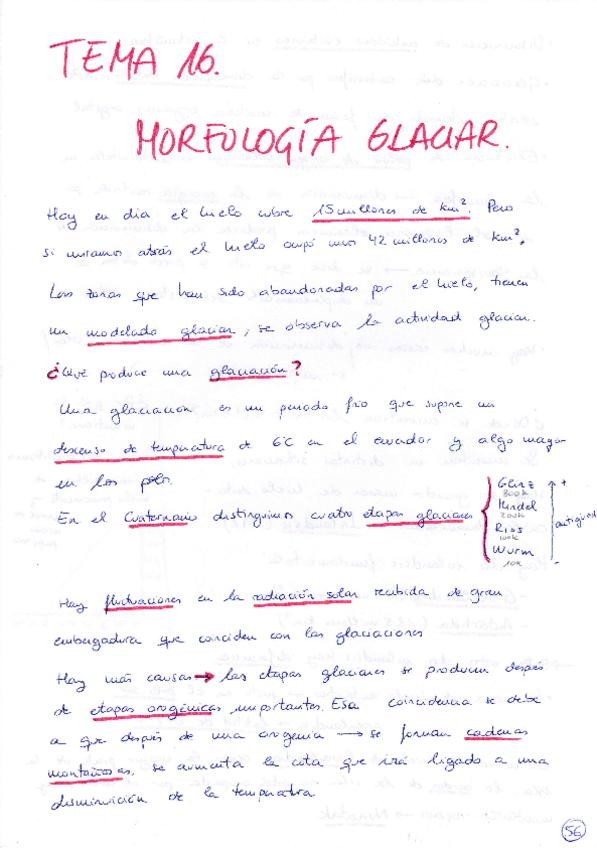 TEMA 16.
MORFOLOGÍA GLACIAR.
Hoy en día el hielo cubre 15 millones de km². Pero
si miramos atrás el hielo ocupó unos 42 millones de km².
Las zonas que han sido abandonadas por el hielo, tienen
un modelado glaciar, se observa la actividad glaciar.
¿Qué produce una glaciación?
Una glaciación es un periodo frío que supone un
descenso de temperatura de 6ºC en el ecuador y algo mayor
en los polos.
En el Cuaternario distinguimos cuatro etapas glaciares
Günz
300k
Mindel
200k
Riss
100k
Würm
10k
+
antigüedad
-
Hay fluctuaciones en la radiación solar recibida de gran
embergadura que coinciden con las glaciaciones
Hay más causas → las etapas glaciares se producen después
de etapas orogénicas importantes. Esa coincidencia se debe
a que después de una orogenia → se forman cadenas
montañosas, se aumenta la cota que irá ligado a una
disminución de la temperatura.
56